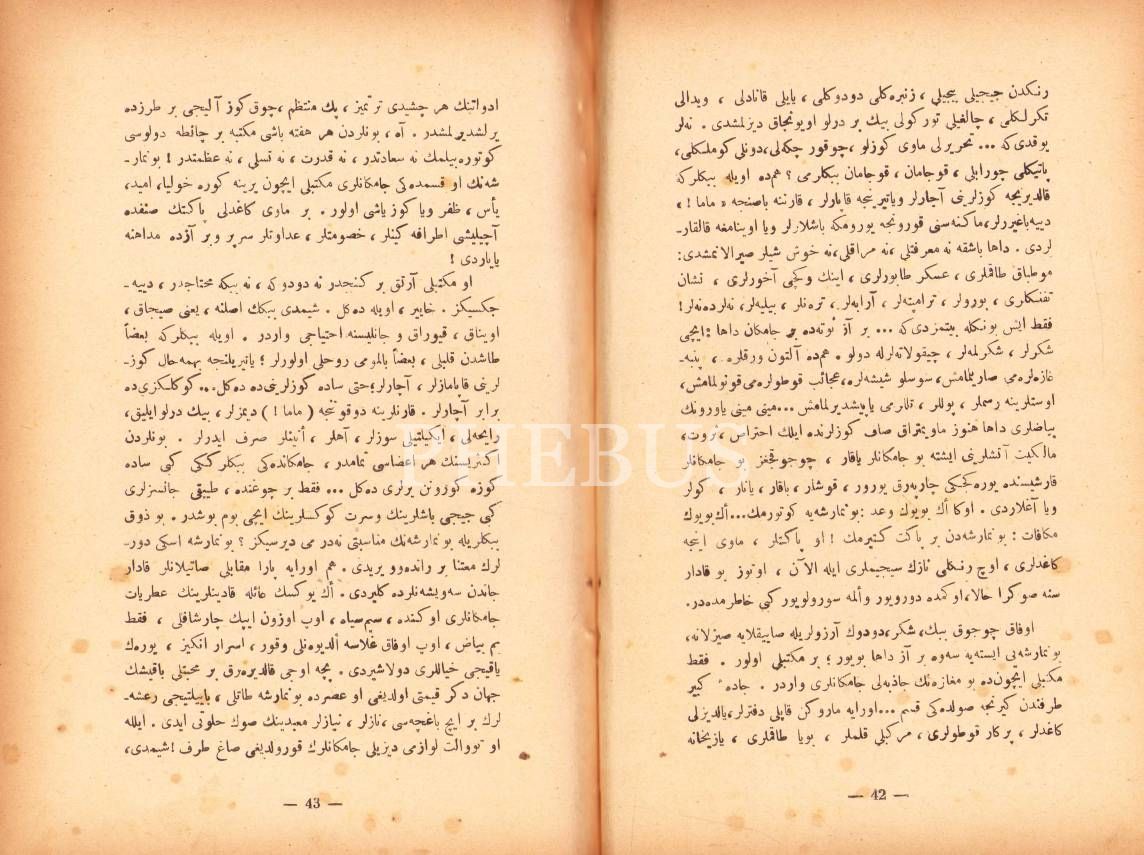 رنكدن جيجيلی بيجيلی ، زنبره‌كلی دودوكلی ، يايلی قانادلی ، ويدالی
تكرلكلی ، چالغيلی توركولی بيك بر درلو اويونجاق ديزلمشدی . نه‌لر
يوقدی‌كه ... تحريرلی ماوی كوزلو ،چوقور چكه‌لی،دونلی كوملكلی،
پاتيكلی چورابلی ، قوجامان ، قوجامان ببكلرمی ؟ هم‌ده اويله ببكلركه
قالديرنجه كوزلرينی آچارلر وياتيرنجه قاپارلر ، قارننه باصنجه « ماما ! »
دييه‌باغيررلر،ماكنه‌سنی قورونجه يورومكه باشلارلر ويا اوينامغه قالقار-
لردی . داها باشقه نه معرفتلی ،نه مراقلی،نه خوش شيلر صيرالانمشدی:
موطباق طاقملری ، عسكر طابورلری ، اينك وكچی آخورلری ، نشان
تفنكلری ، بورولر ، ترامپته‌لر ، آرابه‌لر ، تره‌نلر ، بيليه‌لر ، نه‌لرده‌نه‌لر!
فقط ايش بونكله بيتمزدی‌كه ... بر آز ئوته‌ده بر جامكان داها :ايچی
شكرلر ، شكرلمه‌لر ، چيقولاته‌لرله دولو . هم‌ده آلتون ورقلره ، پنبه-
غازه‌لره‌می صاريلمامش، سوسلو شيشه‌لره،عجائب قوطولره‌می قونولمامش،
اوستلرينه رسملر ، پوللر ، تللرمی ياپيشديرلمامش ...مينی مينی ياورونك
بياضلری داها هنوز ماويمتراق صاف كوزلرنده ايلك احتراص ، ثروت،
مالكيت آتشلرينی ايشته بو جامكانلر ياقار ، چوجوقجغز بو جامكانلر
قارشيسنده يوره‌كجكی چارپه‌رق يورور ، قوشار ، باقار ، يانار ، كولر
ويا آغلاردی . اوكا أك بويوك وعد :بونمارشه‌يه كوتورمك...أك‌بويوك
مكافات : بونمارشه‌دن بر پاكت كتيرمك ! او پاكتلر ، ماوی اينجه
كاغدلری ، اوچ رنكلی نازك سيجيملری ايله الآن ، اوتوز بو قادار
سنه صوكرا حالا،اوكمده دورويور وألمه سورولويور كبی خاطرمده‌در.
اوفاق چوجوق ببك،شكر،دودوك آرزولريله صاييقلايه صيزلانه،
بونمارشه‌يی ايسته‌يه سه‌وه بر آز داها بويور ؛ بر مكتبلی اولور . فقط
مكتبلی ايچون‌ده بو مغازه‌نك جاذبه‌لی جامكانلری واردر . جادهٔ كبير
طرفندن كيرنجه صولده‌كی قسم ...اورايه ماروكن قاپلی دفترلر،يالديزلی
كاغدلر ، پركار قوطولری ، مركبلی قلملر ، بويا طاقملری ، يازيخانه
— 42 —
ادواتنك هر چشيدی ترتميز ، پك منتظم ،چوق كوز آليجی بر طرزده
يرلشديرلمشدر . آه ، بونلردن هر هفته باشی مكتبه بر چانطه دولوسی
كوتوره‌بيلمك نه سعادتدر ، نه قدرت ، نه تسلی ، نه عظمتدر ! بونمار-
شه‌نك او قسمده‌كی جامكانلری مكتبلی ايچون يرينه كوره خوليا، اميد،
يأس ، ظفر ويا كوز ياشی اولور . بر ماوی كاغدلی پاكتك صنفده
آچيليشی اطرافه كينلر ، خصومتلر ، عداوتلر سرپر وبر آزده مداهنه
ياپاردی !
او مكتبلی آرتق بر كنجدر نه دودوكه ، نه ببكه محتاجدر ، دييه-
جكسيكز . خاير ، اويله ده‌كل . شيمدی ببكك اصلنه ، يعنی صيجاق ،
اويناق ، قيوراق و جانليسنه احتياجی واردر . اويله ببكلركه بعضاً
طاشدن قلبلی ، بعضاً بالمومی روحلی اولورلر ؛ ياتيريلنجه بهمه‌حال كوز-
لرينی قاپامازلر ، آچارلر؛حتی ساده كوزلرينی‌ده ده‌كل... كوكلكزی‌ده
برابر آچارلر . قارنلرينه دوقوننجه ( ماما ! ) ديمزلر ، بيك درلو ايليق،
رايحه‌لی ، ايكيلتيلی سوزلر ، آهلر ، أنينلر صرف ايدرلر . بونلردن
اكثريسنك هر اعضاسی تمامدر ، جامكانده‌كی ببكلركی كبی ساده
كوزه كورونن يرلری ده‌كل ... فقط بر چوغنده ، طيبقی جانسزلری
كبی جيجی باشلرينك وسرت كوكسلرينك ايچی بوم بوشدر . بو ذوق
ببكلريله بونمارشه‌نك مناسبتی نه‌در می ديرسيكز ؟ بونمارشه اسكی دور-
لرك معتنا بر رانده‌وو يريدی . هم اورايه پارا مقابلی صاتيلانلر قادار
جاندن سه‌ويشنلرده كليردی. أك يوكسك عائله قادينلرينك عطريات
جامكانلری اوكنده ، سيم‌سياه ، اوپ اوزون ايپك چارشافلی ، فقط
بم بياض ، اوپ اوفاق غلاسه ألديوه‌نلی وقور ، اسرار انكيز ، يورك
ياقيجی خياللری دولاشيردی . پچه اوجی قالديره‌رق بر محبتلی باقيشك
جهان دكر قيمتی اولديغی او عصرده بونمارشه طاتلی ، باييلتيجی رعشه-
لرك بر ايچ باغچه‌سی ،نازلر ، نيازلر معبدينك صوك خلوتی ايدی . ايلله
او تووالت لوازمی ديزيلی جامكانلرك قورولديغی صاغ طرف !شيمدی،
— 43 —
PHEBUS